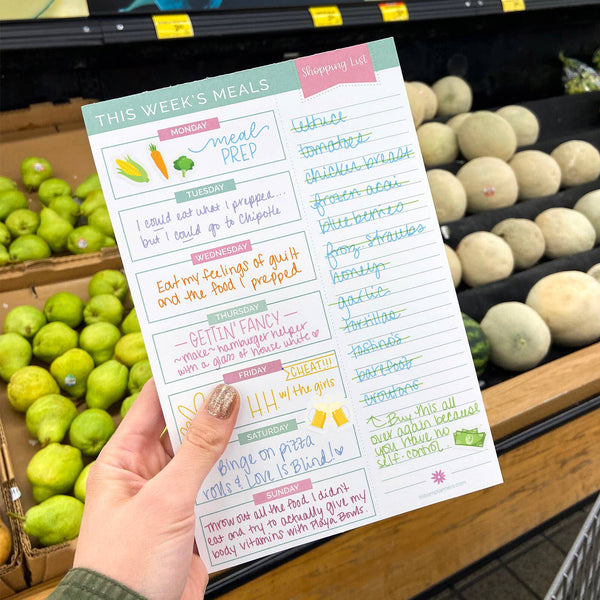 THIS WEEK'S MEALS
MONDAY
meal
PREP
TUESDAY
I could eat what I prepped...
but I could go to Chipotle
WEDNESDAY
Eat my feelings of guilt
and the food I prepped
THURSDAY
- GETTIN' FANCY -
~make~ hamburger helper
with a glass of house white
FRIDAY
CHEAT!!!
HH w/ the girls
SATURDAY
Binge on pizza
rolls & Love Is Blind!
SUNDAY
Throw out all the food I didn't
eat and try to actually give my
body vitamins with Playa Bowls.
Shopping List
lettuce
tomatoes
chicken breast
frozen acai
blueberries
froz straubs
honey
garlic
tortillas
tostino's
barefoot
croutons
Buy this all
over again because
you have no
self-control...
bloomplanners.com